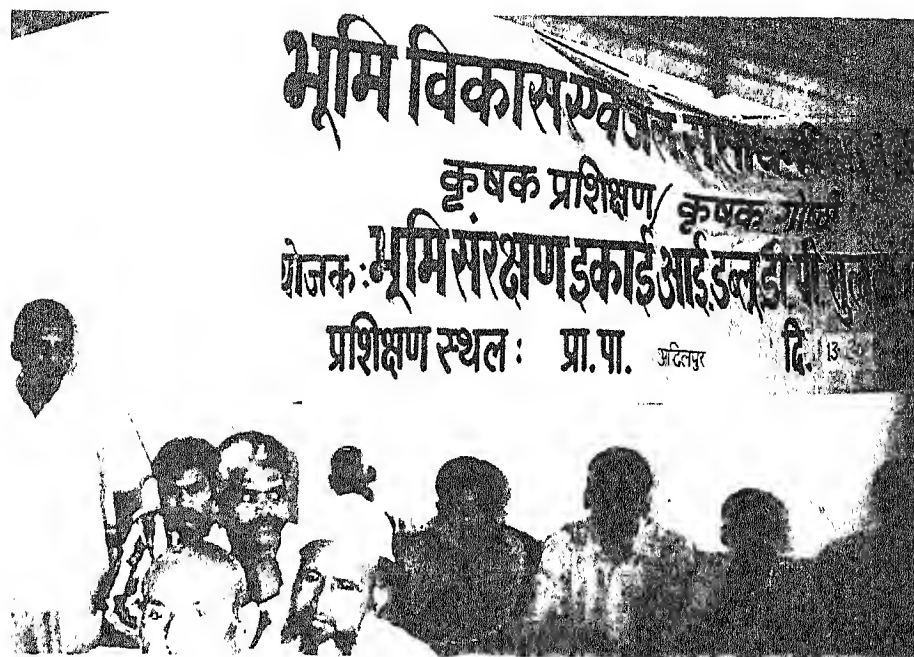 भूमि विकास एवं
कृषक प्रशिक्षण/ कृषक गोष्ठी
योजक: भूमि संरक्षण इकाई आई डब्लू डी पी
प्रशिक्षण स्थल: प्रा.पा. अदिलपुर दि. 13